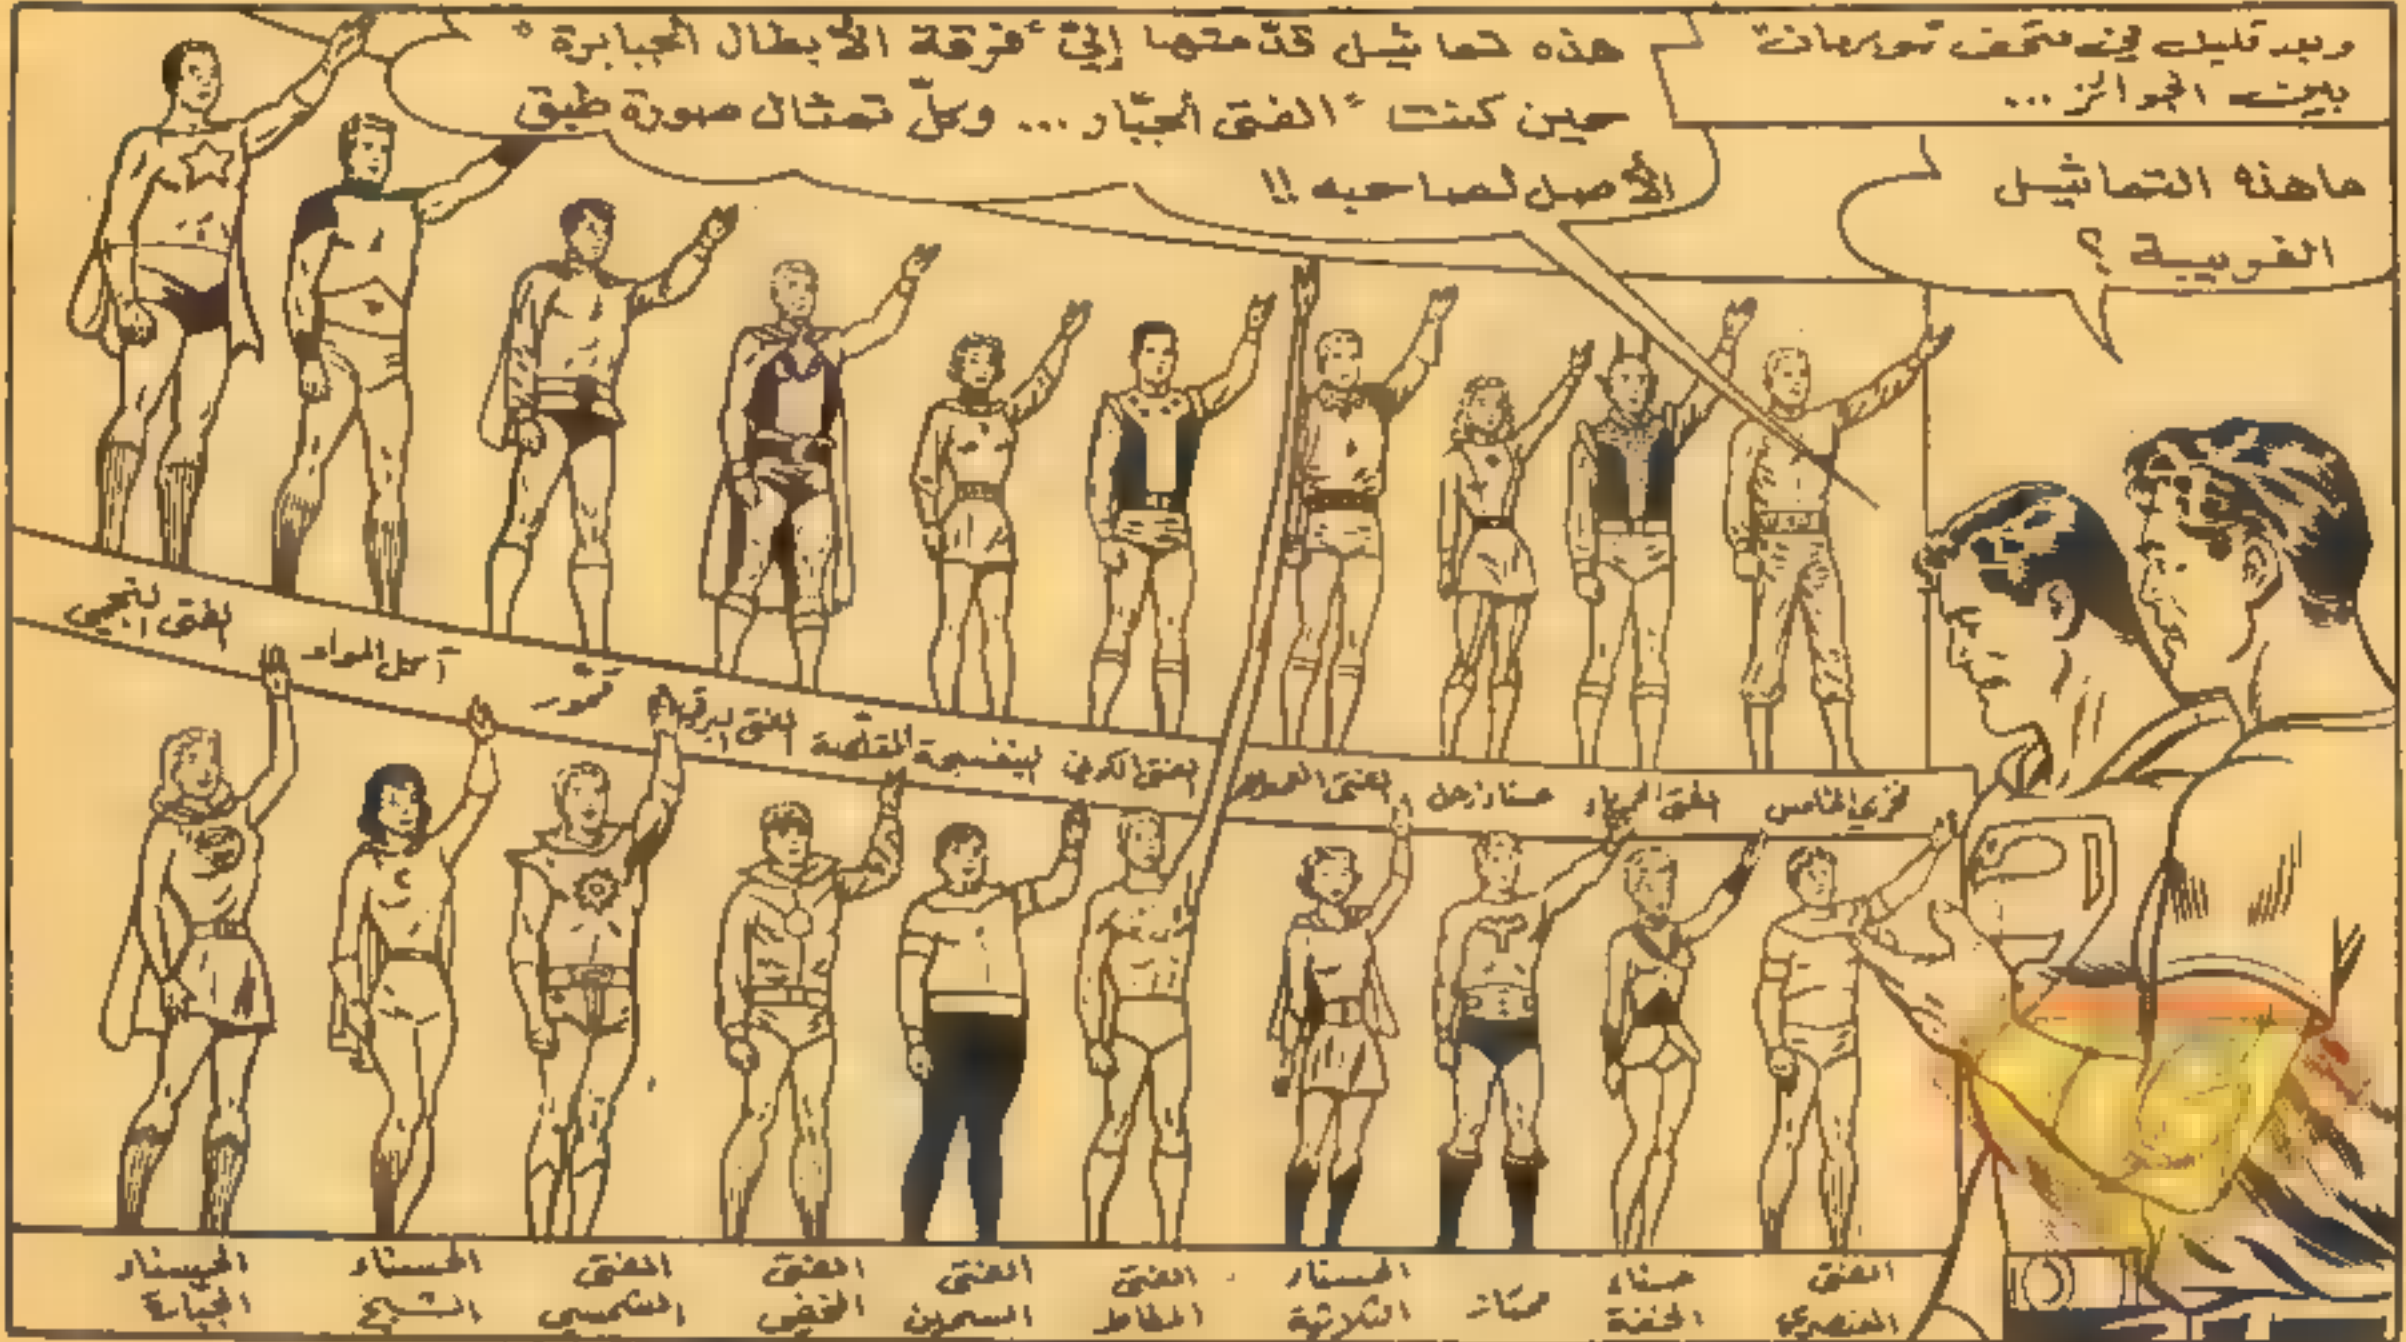 وبعد قليل في متحف سوبرمان
بيت الجوائز...
ما هذه التماثيل
الغريبة ؟
هذه تماثيل قدّمتها إليّ "فرقة الأبطال الجبابرة"
حين كنت "الفتى الجبّار... وكلّ تمثال صورة طبق
الأصل لصاحبه !!
الفتى النجمي
آكل المواد
الفتى البرق
البنفسجية المتقلّصة
الفتى الكوني
الفتى
حسناء زحل
الفتى الجبار
الخامس
الحسناء
الجبارة
الحسناء
الشبح
الفتى
الشمسي
الفتى
الخفي
الفتى
السمين
الفتى
المطاط
الحسناء
الثلاثية
حسناء
الخفة
الفتى
العنصري